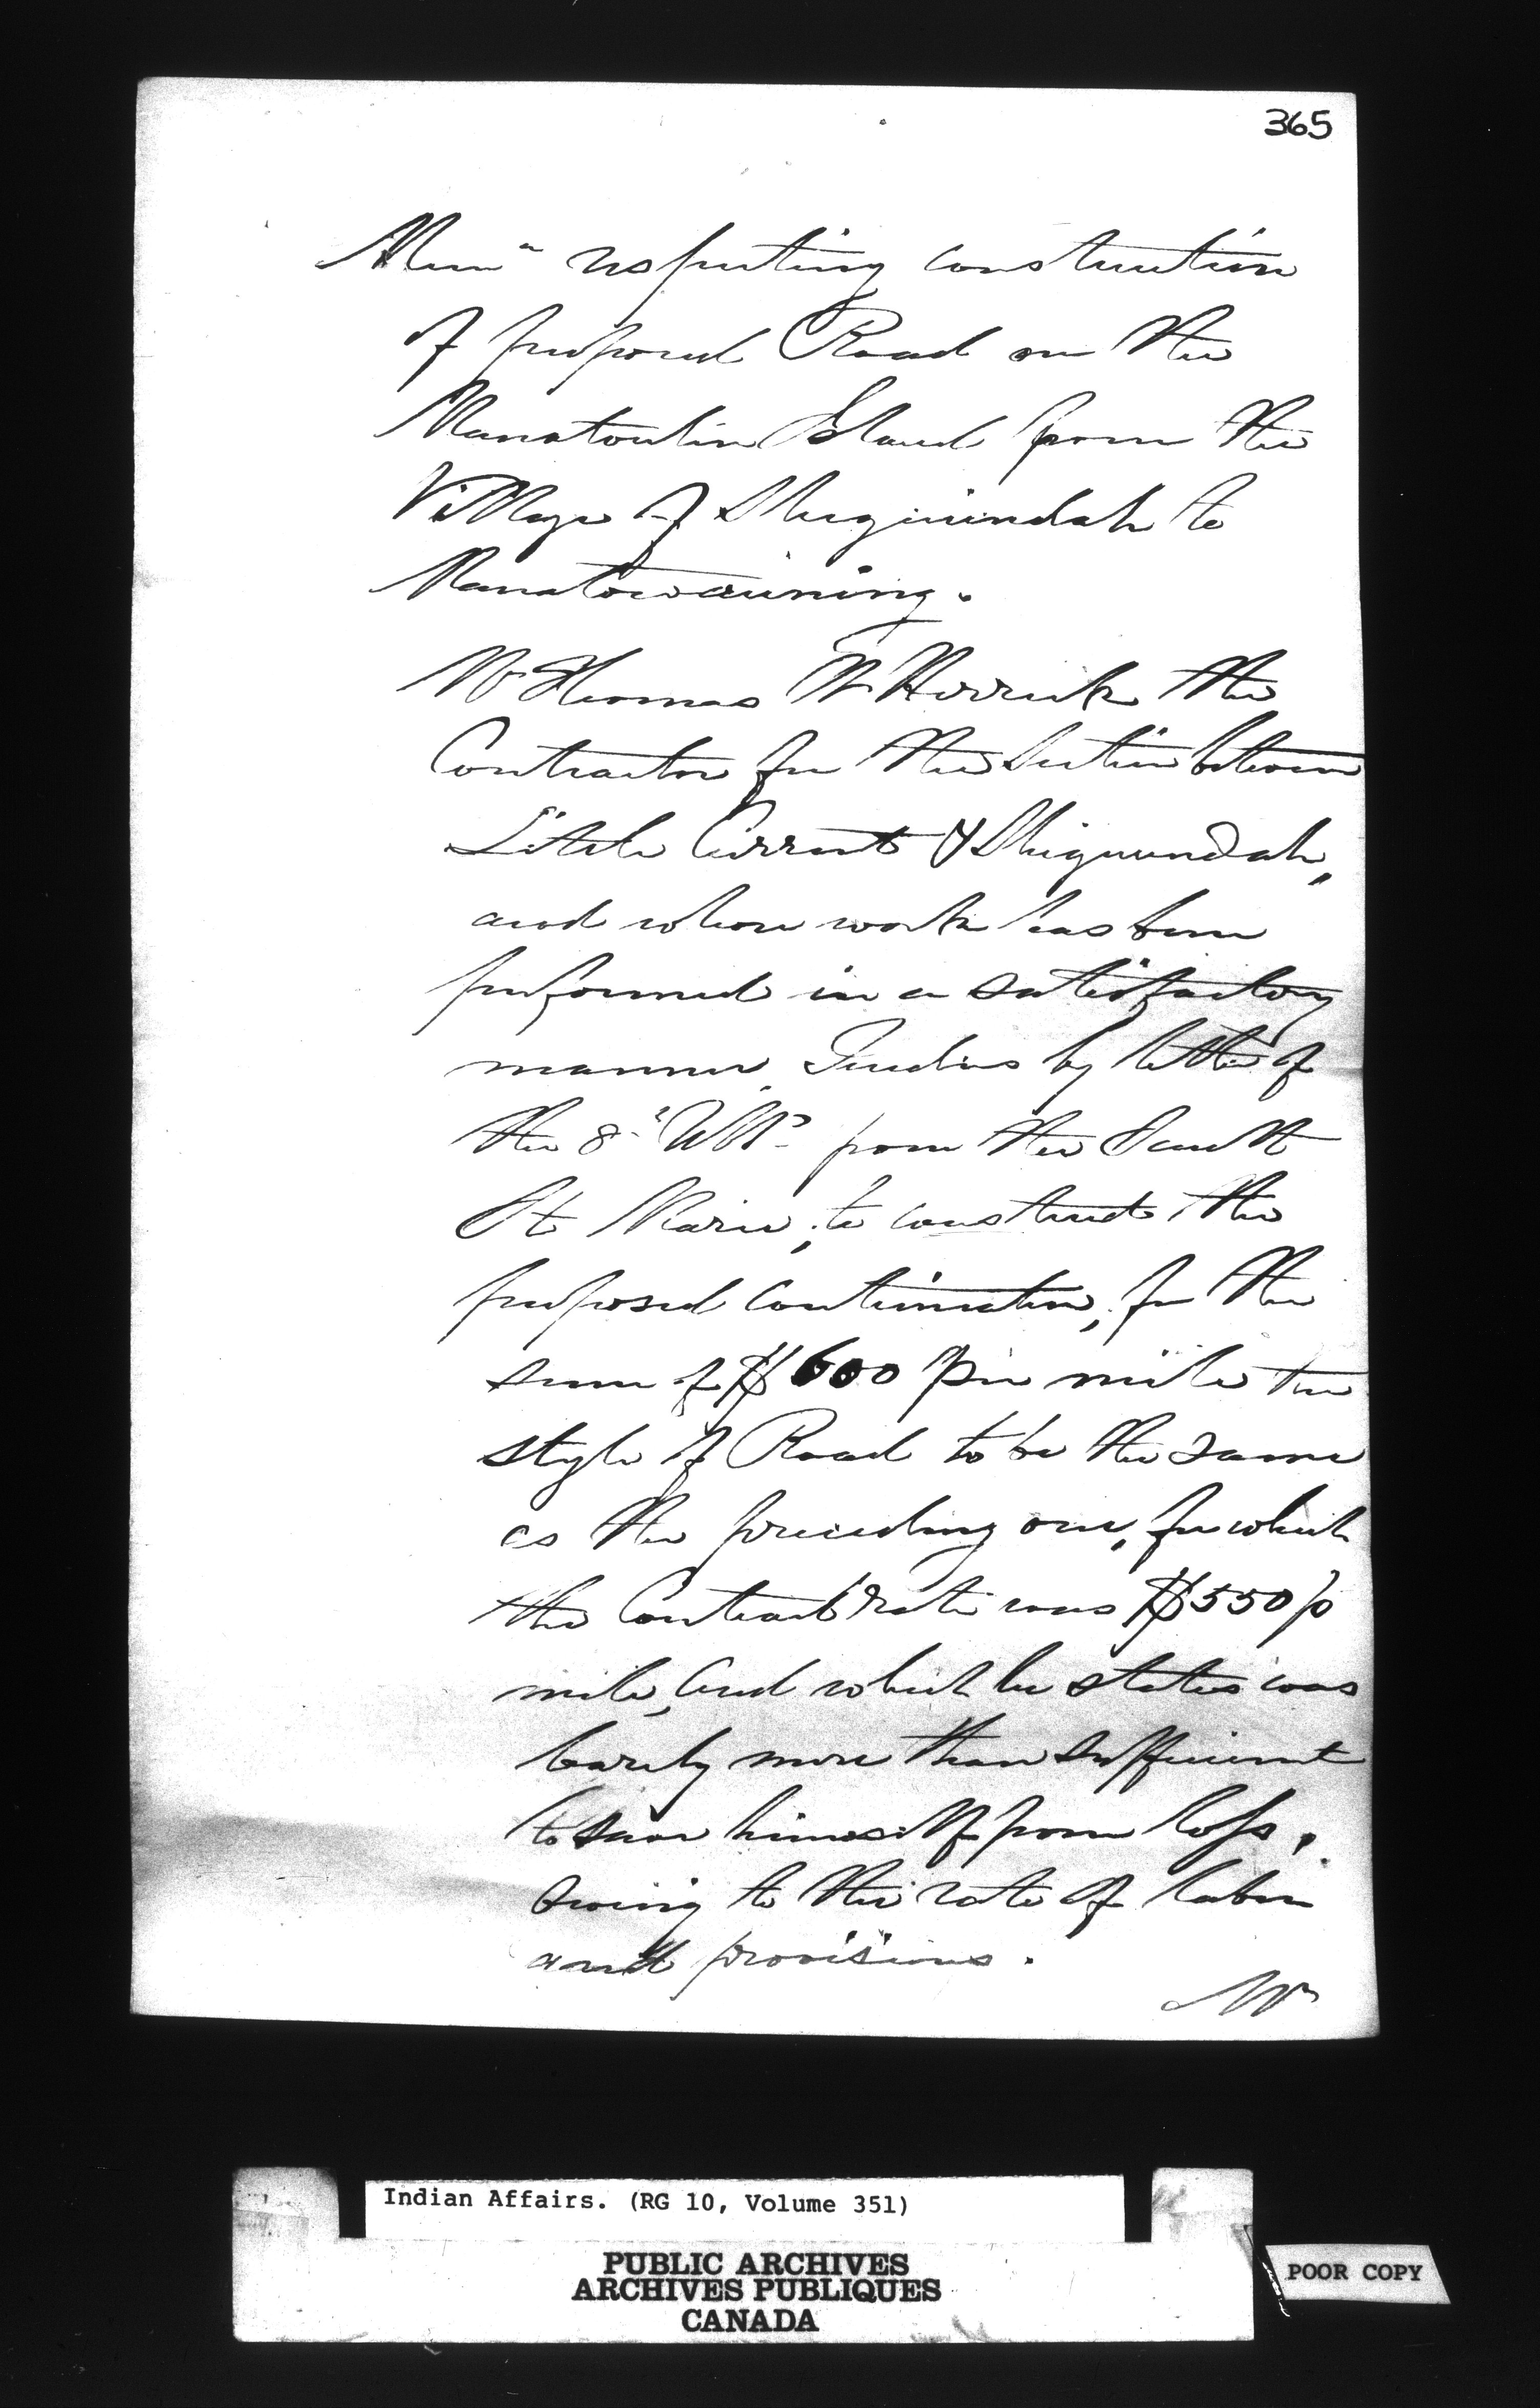 365
Mem° respecting construction
of proposed Road on the
Manatoulin Island from the
Village of Sheguindah to
Manatowauning.
Mr Thomas W Herrick the
Contractor for the Section between
Little Current & Shiguundah,
and whose work has been
performed in a satisfactory
manner, Tenders by letter of
the 8" Ult° from the Sault
St Marie, to construct the
proposed Continuation, for the
sum of $600 per mile the
style of Road to be the same
as the preceding one, for which
the Contract rate was $550 p
mile, and which he states was
barely more than sufficient
to save himself from loss,
owing to the rate of labor
and provisions.
Mr
Indian Affairs. (RG 10, Volume 351)
PUBLIC ARCHIVES
ARCHIVES PUBLIQUES
CANADA
POOR COPY